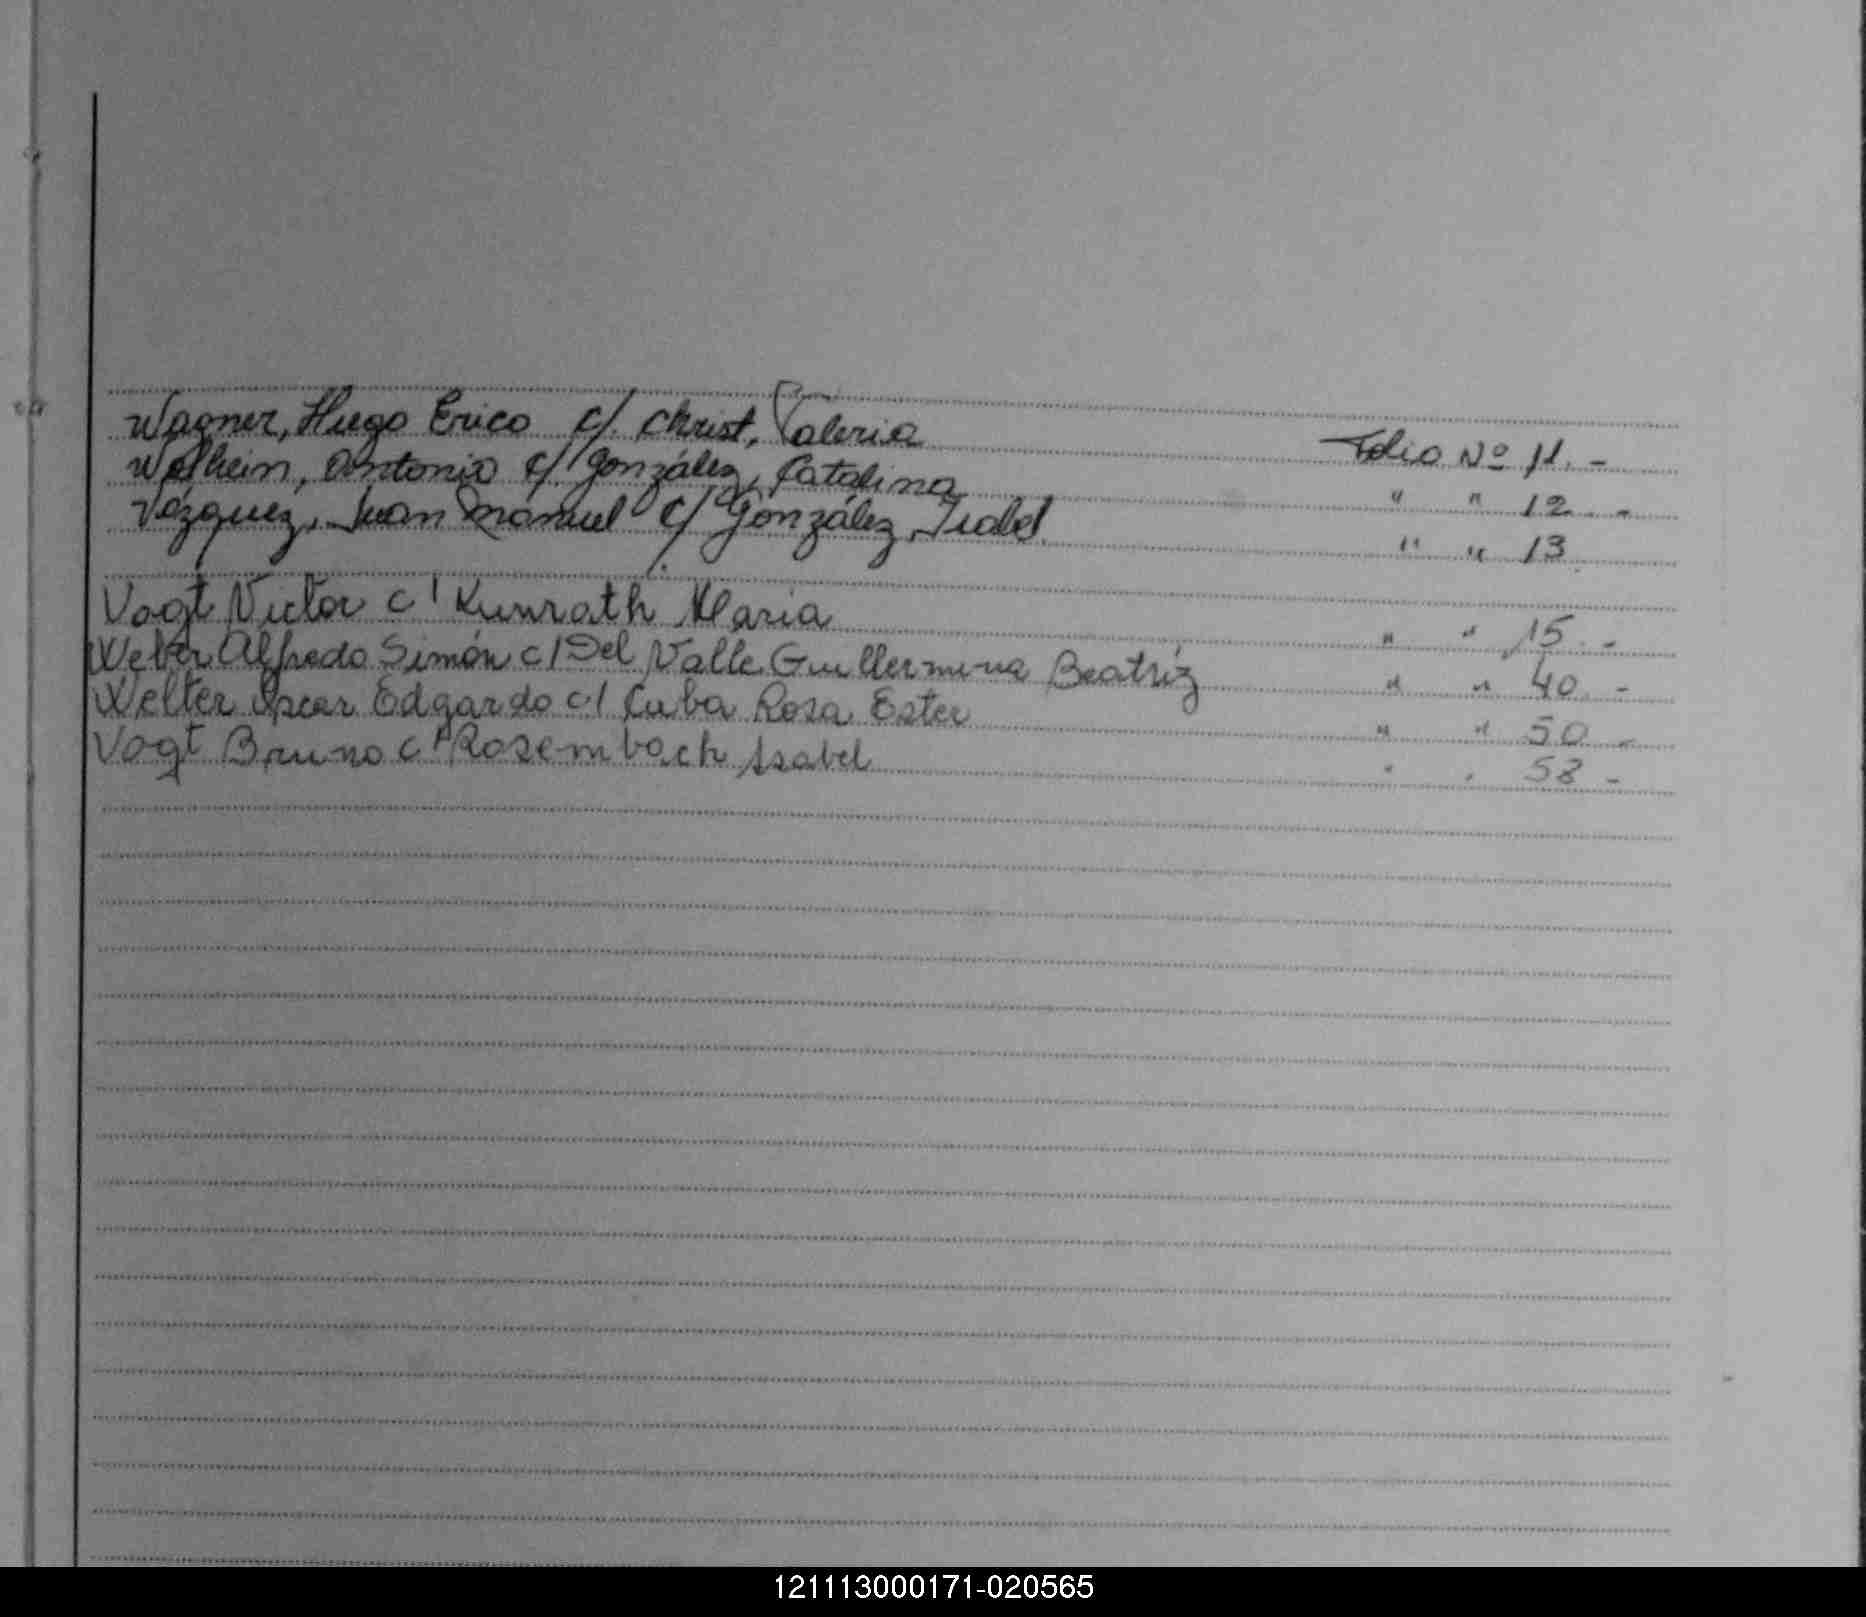 Wagner, Hugo Erico c/. Christ, Valeria Folio Nº 11. -
Wolhein, Antonio c/ González, Catalina " " 12. -
Vázquez, Juan Manuel c/ González, Isabel. " " 13
Vogt Victor c/ Kunrath Maria " " 15. -
Weber Alfredo Simón c/ Del Valle Guillermina Beatríz " " 40. -
Welter Oscar Edgardo c/ Cuba Rosa Ester " " 50 -
Vogt Bruno c/ Rosembach Isabel " " 58 -
121113000171-020565